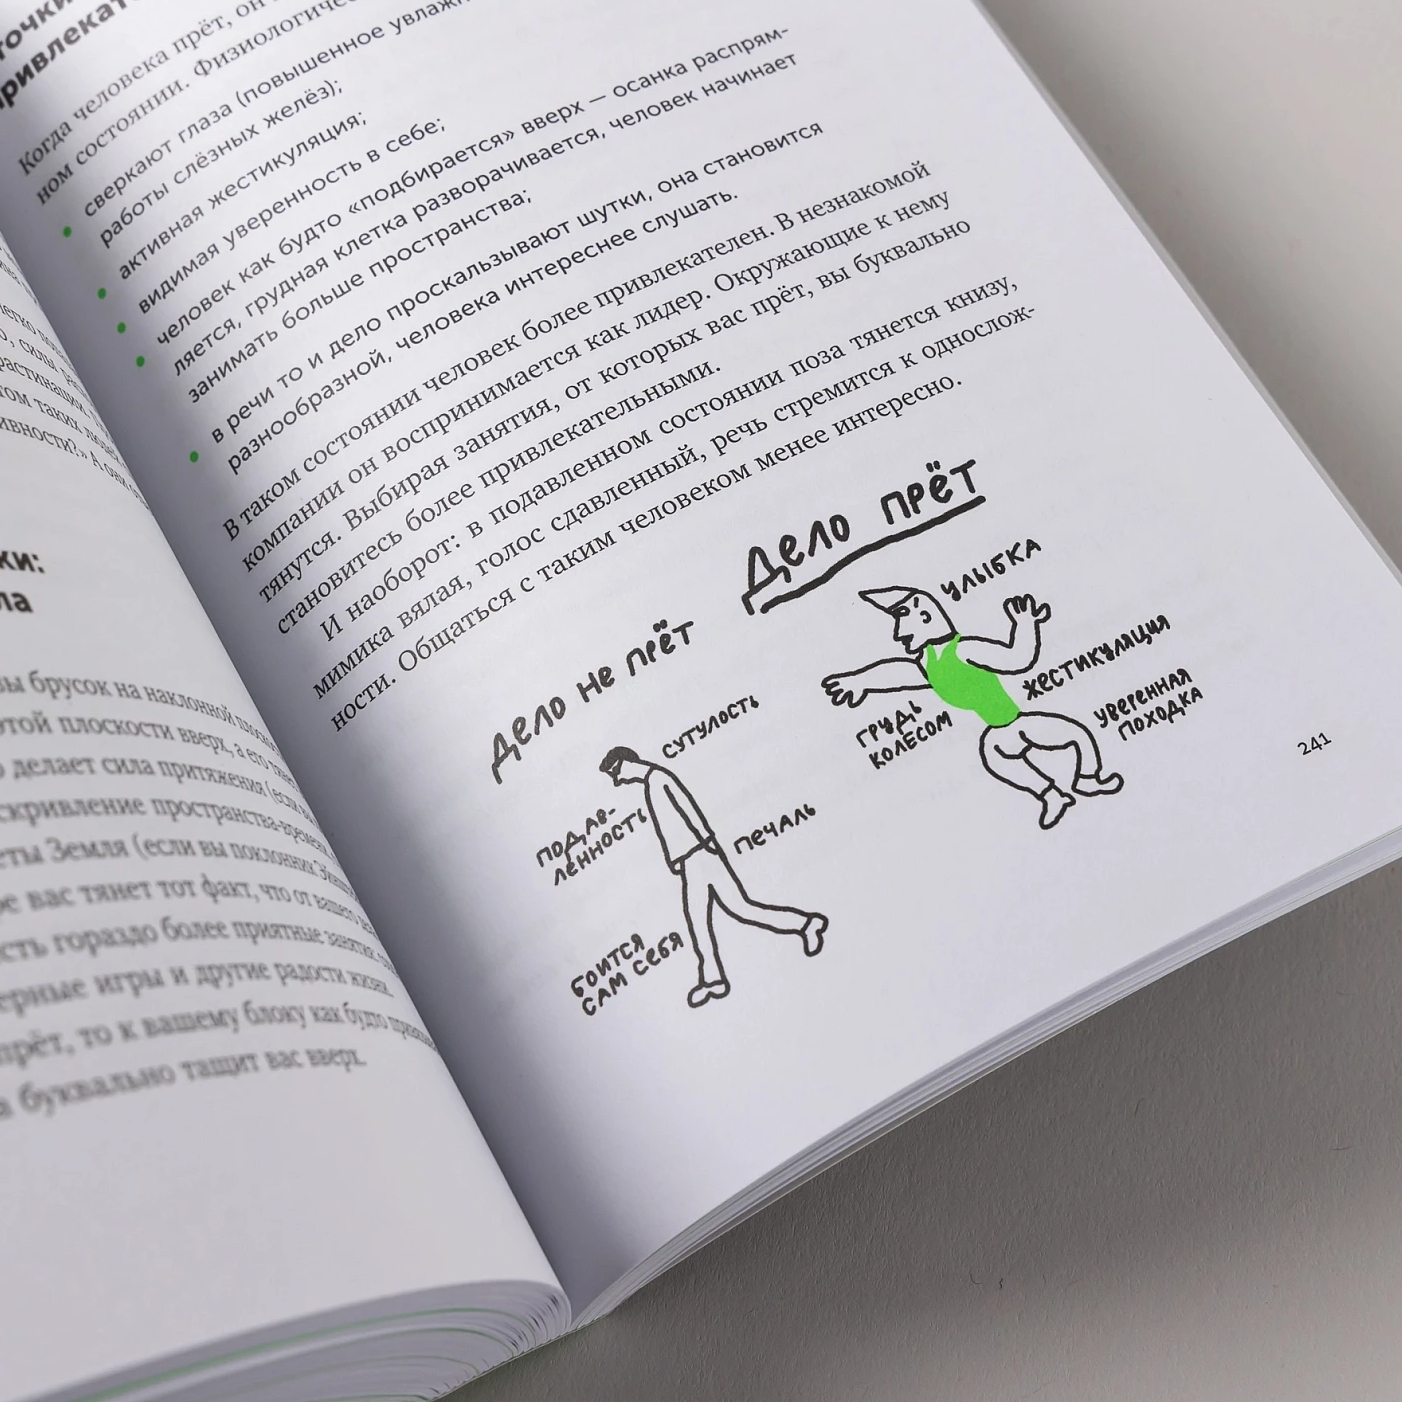 ки:
ла
вы брусок на наклонной
этой плоскости вверх, а его
делает сила притяжения (если
скривление пространства-времени
еты Земля (если вы поклонник
ре вас тянет тот факт, что от вашего
сть гораздо более приятные занятия
ерные игры и другие радости жизни.
прёт, то к вашему блоку как будто
а буквально тащит вас вверх.
точки
привлекат
Когда человека прёт, он
ном состоянии. Физиологичес
• сверкают глаза (повышенное увлажн
работы слёзных желёз);
• активная жестикуляция;
• видимая уверенность в себе;
• человек как будто «подбирается» вверх — осанка распрям-
ляется, грудная клетка разворачивается, человек начинает
занимать больше пространства;
• в речи то и дело проскальзывают шутки, она становится
разнообразной, человека интереснее слушать.
В таком состоянии человек более привлекателен. В незнакомой
компании он воспринимается как лидер. Окружающие к нему
тянутся. Выбирая занятия, от которых вас прёт, вы буквально
становитесь более привлекательными.
И наоборот: в подавленном состоянии поза тянется книзу,
мимика вялая, голос сдавленный, речь стремится к однослож-
ности. Общаться с таким человеком менее интересно.
Дело не прёт
сутулость
подав-
ленность
печаль
боится
сам себя
Дело прёт
улыбка
жестикуляция
грудь
колесом
уверенная
походка
241